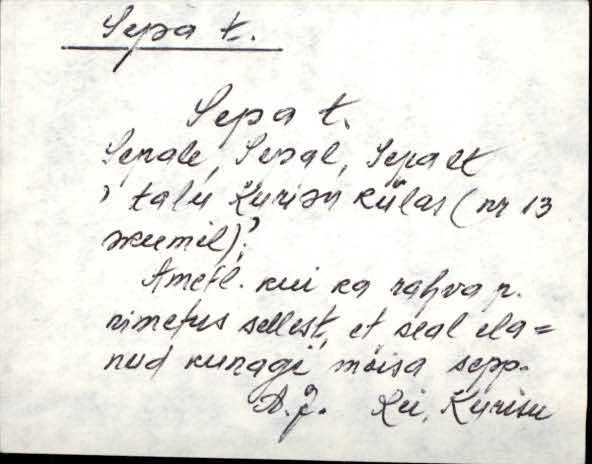 Sepa t.
Sepa t.
Sepale, Sepal, Sepalt
, talu Kurisu külas (nr 13
skeemil)?
Ametl. kui ka rahva p.
nimetus sellest, et seal ela=
nud kunagi mõisa sepp.
A. J. Rei, Kurisu